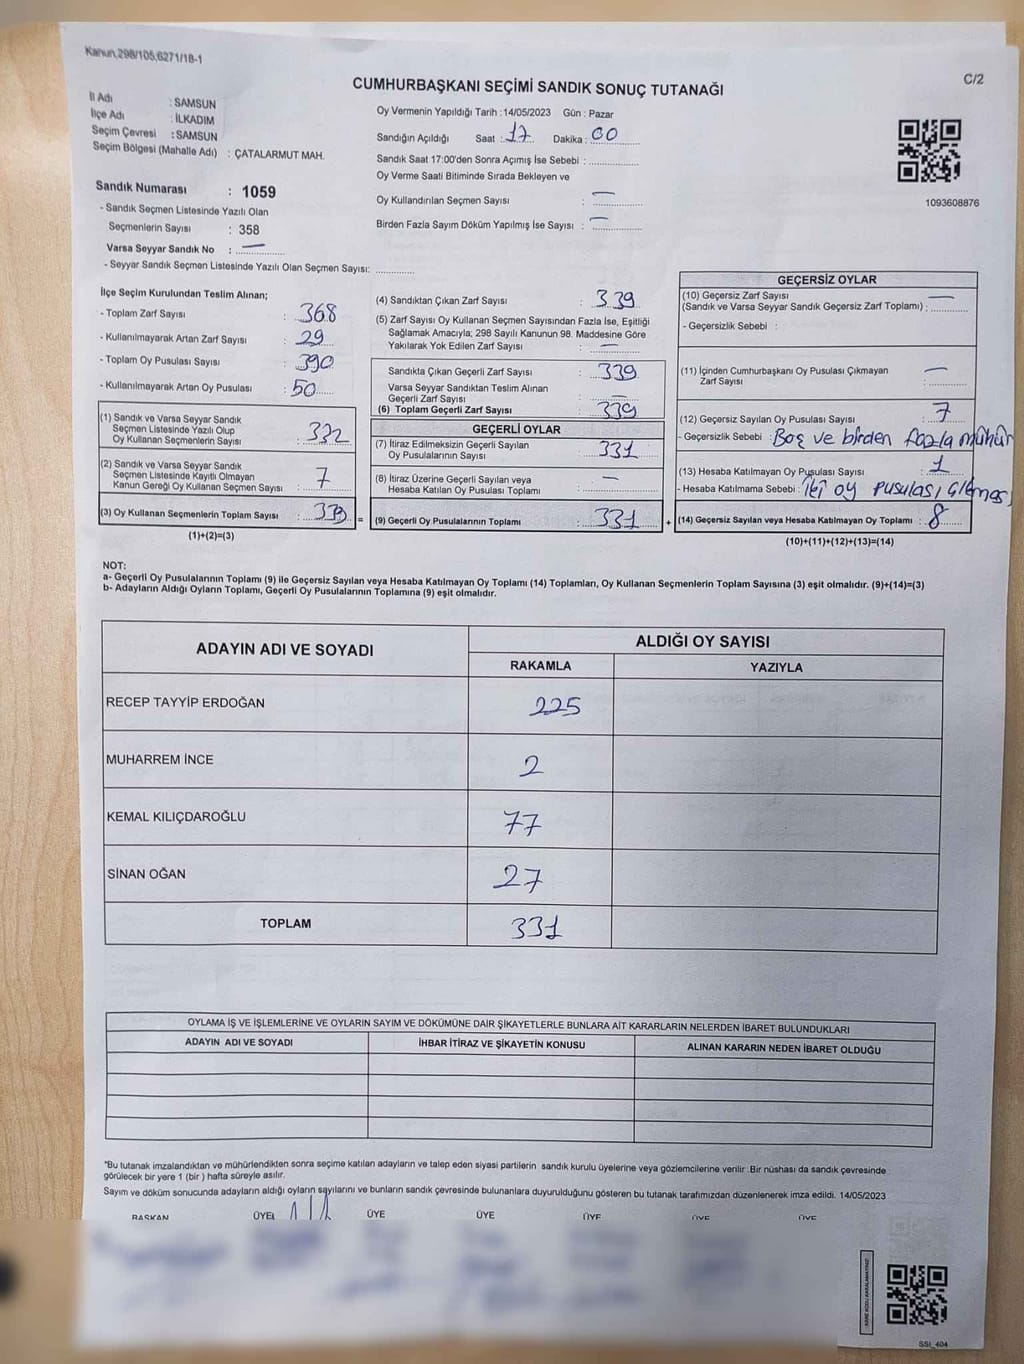 Kanun,298/105,6271/18-1
C/2
CUMHURBAŞKANI SEÇİMİ SANDIK SONUÇ TUTANAĞI
İl Adı : SAMSUN
İlçe Adı : İLKADIM
Seçim Çevresi : SAMSUN
Seçim Bölgesi (Mahalle Adı) : ÇATALARMUT MAH.
Sandık Numarası : 1059
- Sandık Seçmen Listesinde Yazılı Olan
Seçmenlerin Sayısı : 358
Varsa Seyyar Sandık No : —
- Seyyar Sandık Seçmen Listesinde Yazılı Olan Seçmen Sayısı: ............
Oy Vermenin Yapıldığı Tarih : 14/05/2023 Gün : Pazar
Sandığın Açıldığı Saat : 17 Dakika : 00
Sandık Saat 17:00'den Sonra Açımış İse Sebebi : ............
Oy Verme Saati Bitiminde Sırada Bekleyen ve
Oy Kullandırılan Seçmen Sayısı : —
Birden Fazla Sayım Döküm Yapılmış İse Sayısı : —
1093608876
İlçe Seçim Kurulundan Teslim Alınan;
- Toplam Zarf Sayısı : 368
- Kullanılmayarak Artan Zarf Sayısı : 29
- Toplam Oy Pusulası Sayısı : 390
- Kullanılmayarak Artan Oy Pusulası : 50
(1) Sandık ve Varsa Seyyar Sandık
Seçmen Listesinde Yazılı Olup
Oy Kullanan Seçmenlerin Sayısı : 332
(2) Sandık ve Varsa Seyyar Sandık
Seçmen Listesinde Kayıtlı Olmayan
Kanun Gereği Oy Kullanan Seçmen Sayısı : 7
(3) Oy Kullanan Seçmenlerin Toplam Sayısı : 339 =
(1)+(2)=(3)
(4) Sandıktan Çıkan Zarf Sayısı : 339
(5) Zarf Sayısı Oy Kullanan Seçmen Sayısından Fazla İse, Eşitliği
Sağlamak Amacıyla; 298 Sayılı Kanunun 98. Maddesine Göre
Yakılarak Yok Edilen Zarf Sayısı : —
Sandıkta Çıkan Geçerli Zarf Sayısı : 339
Varsa Seyyar Sandıktan Teslim Alınan
Geçerli Zarf Sayısı : —
(6) Toplam Geçerli Zarf Sayısı : 339
GEÇERLİ OYLAR
(7) İtiraz Edilmeksizin Geçerli Sayılan
Oy Pusulalarının Sayısı : 331
(8) İtiraz Üzerine Geçerli Sayılan veya
Hesaba Katılan Oy Pusulası Toplamı : —
(9) Geçerli Oy Pusulalarının Toplamı : 331 +
GEÇERSİZ OYLAR
(10) Geçersiz Zarf Sayısı —
(Sandık ve Varsa Seyyar Sandık Geçersiz Zarf Toplamı) :
- Geçersizlik Sebebi :
(11) İçinden Cumhurbaşkanı Oy Pusulası Çıkmayan
Zarf Sayısı : —
(12) Geçersiz Sayılan Oy Pusulası Sayısı : 7
- Geçersizlik Sebebi : Boş ve birden fazla mühür
(13) Hesaba Katılmayan Oy Pusulası Sayısı : 1
- Hesaba Katılmama Sebebi : İki oy pusulası
(14) Geçersiz Sayılan veya Hesaba Katılmayan Oy Toplamı : 8
(10)+(11)+(12)+(13)=(14)
NOT:
a- Geçerli Oy Pusulalarının Toplamı (9) ile Geçersiz Sayılan veya Hesaba Katılmayan Oy Toplamı (14) Toplamları, Oy Kullanan Seçmenlerin Toplam Sayısına (3) eşit olmalıdır. (9)+(14)=(3)
b- Adayların Aldığı Oyların Toplamı, Geçerli Oy Pusulalarının Toplamına (9) eşit olmalıdır.
ADAYIN ADI VE SOYADI
ALDIĞI OY SAYISI
RAKAMLA YAZIYLA
RECEP TAYYİP ERDOĞAN 225
MUHARREM İNCE 2
KEMAL KILIÇDAROĞLU 77
SİNAN OĞAN 27
TOPLAM 331
OYLAMA İŞ VE İŞLEMLERİNE VE OYLARIN SAYIM VE DÖKÜMÜNE DAİR ŞİKAYETLERLE BUNLARA AİT KARARLARIN NELERDEN İBARET BULUNDUKLARI
ADAYIN ADI VE SOYADI İHBAR İTİRAZ VE ŞİKAYETİN KONUSU ALINAN KARARIN NEDEN İBARET OLDUĞU
*Bu tutanak imzalandıktan ve mühürlendikten sonra seçime katılan adayların ve talep eden siyasi partilerin sandık kurulu üyelerine veya gözlemcilerine verilir .Bir nüshası da sandık çevresinde
görülecek bir yere 1 (bir ) hafta süreyle asılır.
Sayım ve döküm sonucunda adayların aldığı oyların sayılarını ve bunların sandık çevresinde bulunanlara duyurulduğunu gösteren bu tutanak tarafımızdan düzenlenerek imza edildi. 14/05/2023
BAŞKAN ÜYE ÜYE ÜYE ÜYE ÜYE ÜYE
SSI_404